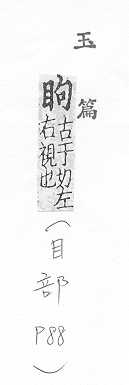 玉篇
眗
古于切左
右視也
(目部 P88)